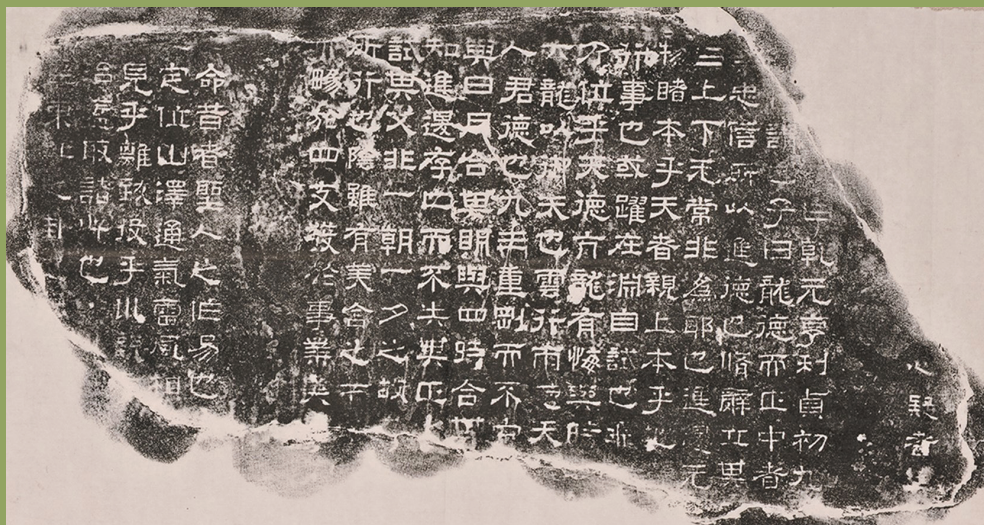 心疑者
乾元亨利貞初九
子曰龍德而正中者
忠信所以進德也脩辭立其
上下无常非為邪也進退无
物睹本乎天者親上本乎地
行事也或躍在淵自試也飛
乃位乎天德亢龍有悔與時
六龍以御天也雲行雨施天
人君德也九三重剛而不中
與日月合其明與四時合其
知進退存亡而不失其正
試其父非一朝一夕之故
所行也陰雖有美含之
暢於四支發於事業美
命昔者聖人之作易也
定位山澤通氣雷風相
見乎離致役乎川說
取諸此也